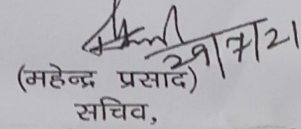 29/7/21
(महेन्द्र प्रसाद)
सचिव,